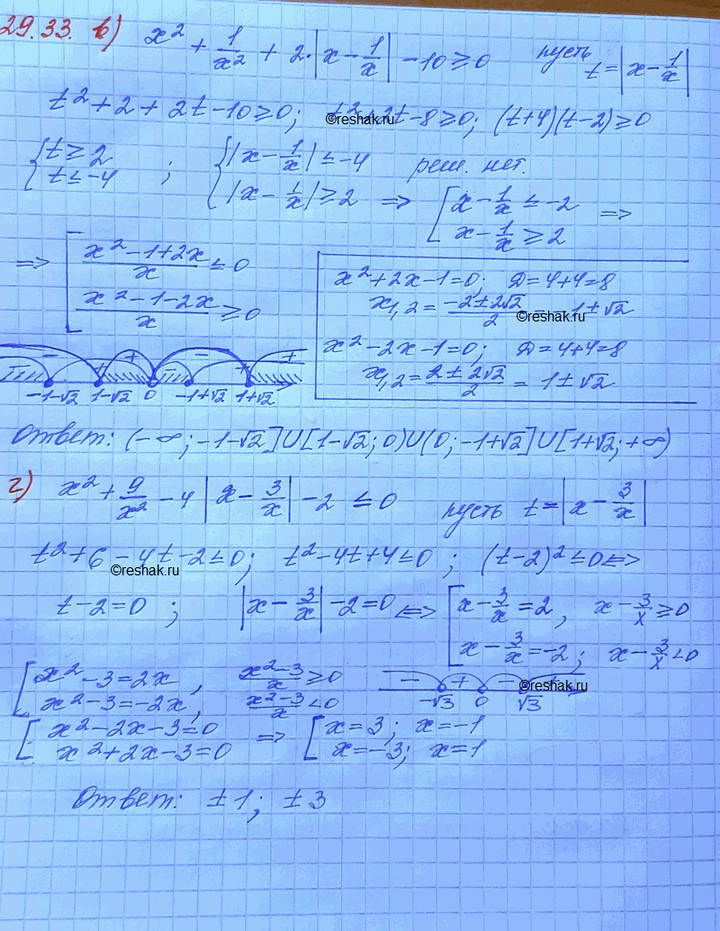 29.33. в) x² + 1/x² + 2·|x − 1/x| − 10 ≥ 0 пусть t = |x − 1/x|
t² + 2 + 2t − 10 ≥ 0; t² + 2t − 8 ≥ 0; (t+4)(t−2) ≥ 0
©reshak.ru
{ t ≥ 2
t ≤ −4 ;
{ |x − 1/x| ≤ −4 реш. нет.
|x − 1/x| ≥ 2 => [ x − 1/x ≤ −2
x − 1/x ≥ 2 =>
=> [ (x² − 1 + 2x)/x ≤ 0
(x² − 1 − 2x)/x ≥ 0
x² + 2x − 1 = 0; D = 4+4 = 8
x₁,₂ = (−2 ± 2√2)/2 = −1 ± √2
©reshak.ru
x² − 2x − 1 = 0; D = 4+4 = 8
x₁,₂ = (2 ± 2√2)/2 = 1 ± √2
− + − + +
−1−√2 1−√2 0 −1+√2 1+√2
Ответ: (−∞; −1−√2] U [1−√2; 0) U (0; −1+√2] U [1+√2; +∞)
г) x² + 9/x² − 4 |x − 3/x| − 2 ≤ 0 пусть t = |x − 3/x|
t² + 6 − 4t − 2 ≤ 0; t² − 4t + 4 ≤ 0; (t−2)² ≤ 0 <=>
©reshak.ru
t − 2 = 0 ; |x − 3/x| − 2 = 0 <=> [ x − 3/x = 2, x − 3/x ≥ 0
x − 3/x = −2; x − 3/x < 0
[ x² − 3 = 2x , (x²−3)/x ≥ 0
x² − 3 = −2x , (x²−3)/x < 0
− + − +
−√3 0 √3
©reshak.ru
[ x² − 2x − 3 = 0
x² + 2x − 3 = 0 => [ x = 3; x = −1
x = −3; x = 1
Ответ: ±1; ±3